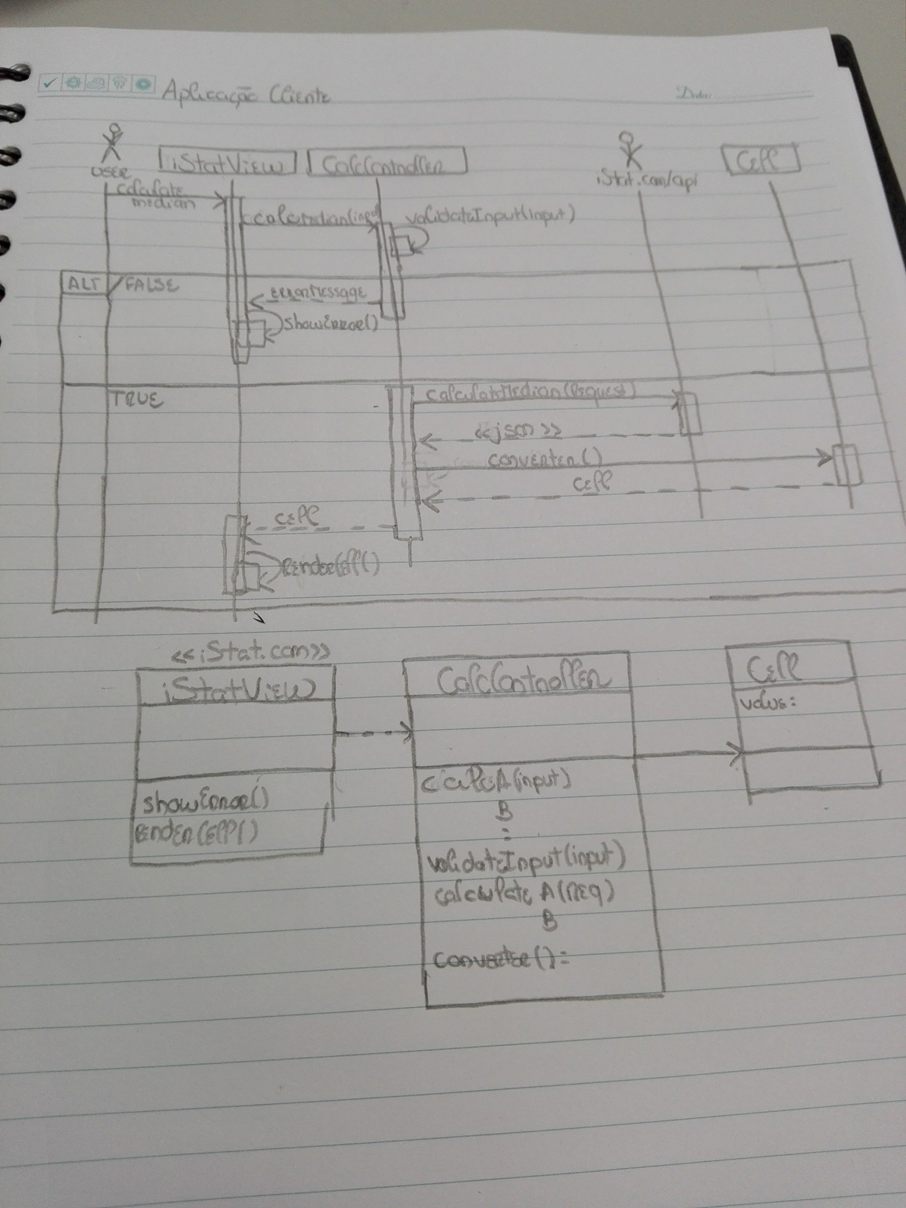 Aplicação Cliente
USER
iStatView
CalcController
iStat.com/api
Cell
calculate
median
validateInput(input)
ALT
FALSE
errorMessage
showError()
TRUE
calculateMedian(Request)
<<json>>
converter()
Cell
Cell
renderCell()
<<iStat.com>>
iStatView
showError()
renderCell()
CalcController
calcA(input)
B
:
validateInput(input)
calculate A(req)
B
converter():
Cell
value: